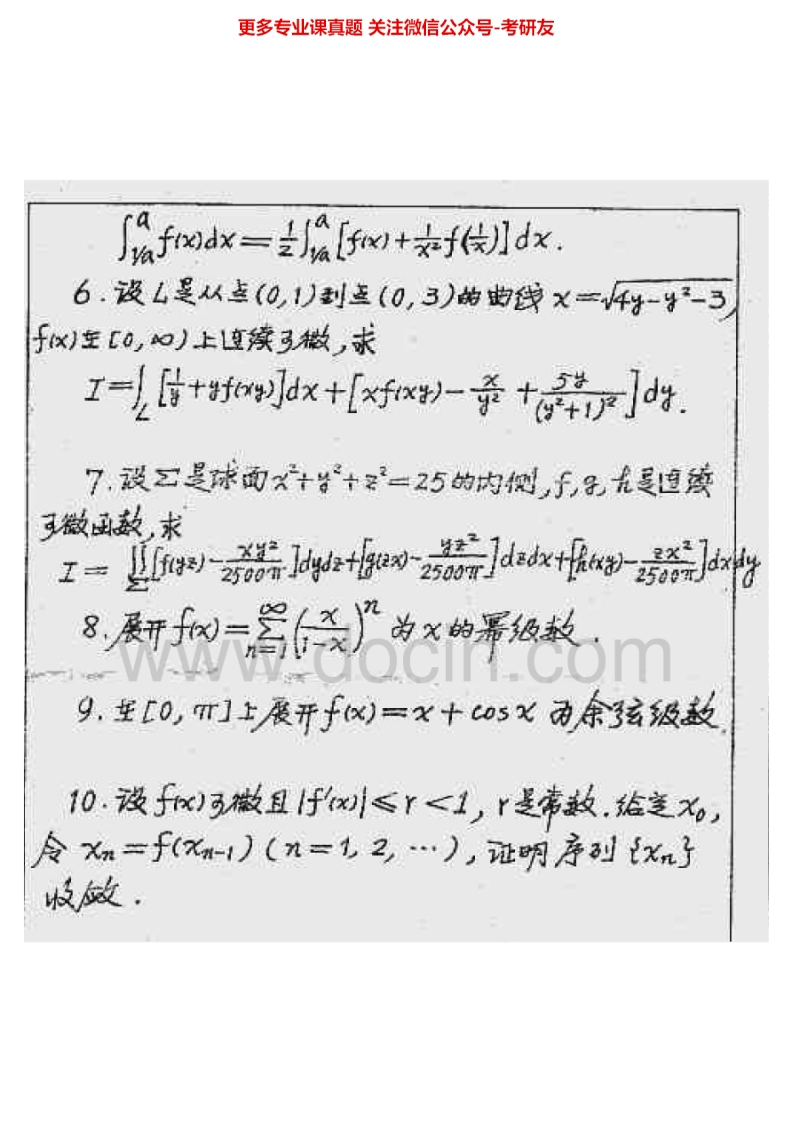 更多专业课真题 关注微信公众号-考研友
∫_{1/a}^{a} f(x)dx = 1/2 ∫_{1/a}^{a} [f(x) + 1/x² f(1/x)] dx.
6. 设 L 是从点(0,1)到点(0,3)的曲线 x = √(4y-y²-3),
f(x)在[0,∞)上连续可微,求
I = ∫_L [1/y + yf(xy)]dx + [xf(xy) - x/y² + 5y/(y²+1)²]dy.
7. 设Σ是球面 x²+y²+z²=25 的内侧, f, g, h是连续
可微函数,求
I = ∬_Σ [f(yz) - xy²/2500π]dydz + [g(zx) - yz²/2500π]dzdx + [h(xy) - zx²/2500π]dxdy
8. 展开 f(x) = ∑_{n=1}^{∞} (x/(1-x))^n 为 x 的幂级数.
www.docin.com
9. 在[0,π]上展开 f(x) = x + cosx 为余弦级数.
10. 设 f(x)可微且 |f'(x)| ≤ r < 1, r 是常数. 给定 x₀,
令 xₙ = f(xₙ₋₁) (n = 1, 2, …), 证明序列 {xₙ}
收敛.